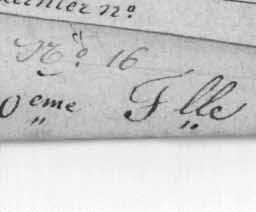 dernier nº
Nº 16
0eme Flle